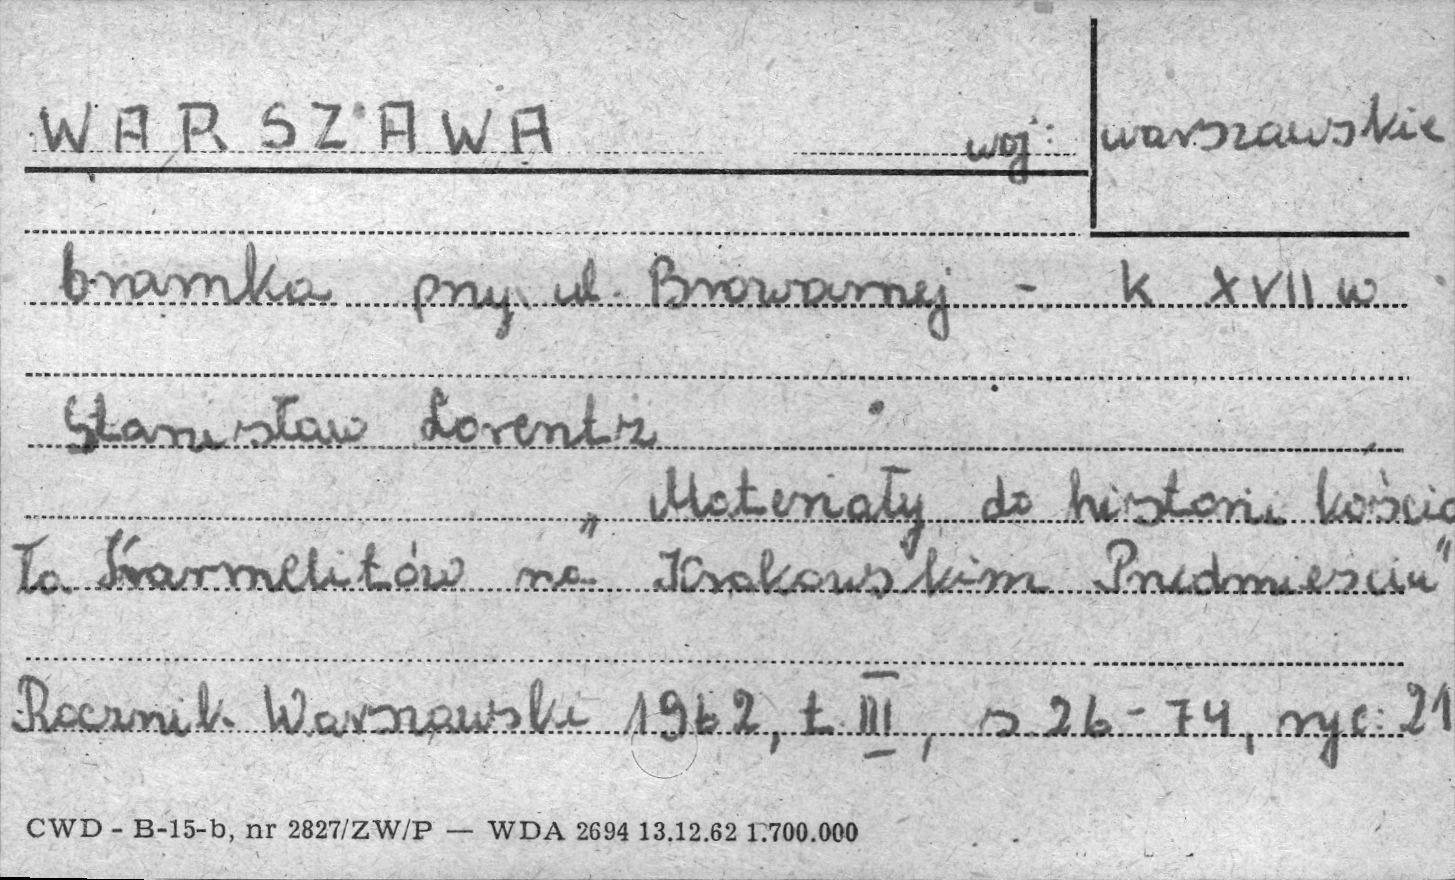 WARSZAWA woj: warszawskie
bramka przy ul. Browarnej - k XVII w
Stanisław Lorentz
"Materiały do historii kościo
ła Karmelitów na Krakowskim Przedmieściu"
Rocznik Warszawski 1962, t. III, s. 26-74, ryc: 21
CWD - B-15-b, nr 2827/ZW/P — WDA 2694 13.12.62 1.700.000